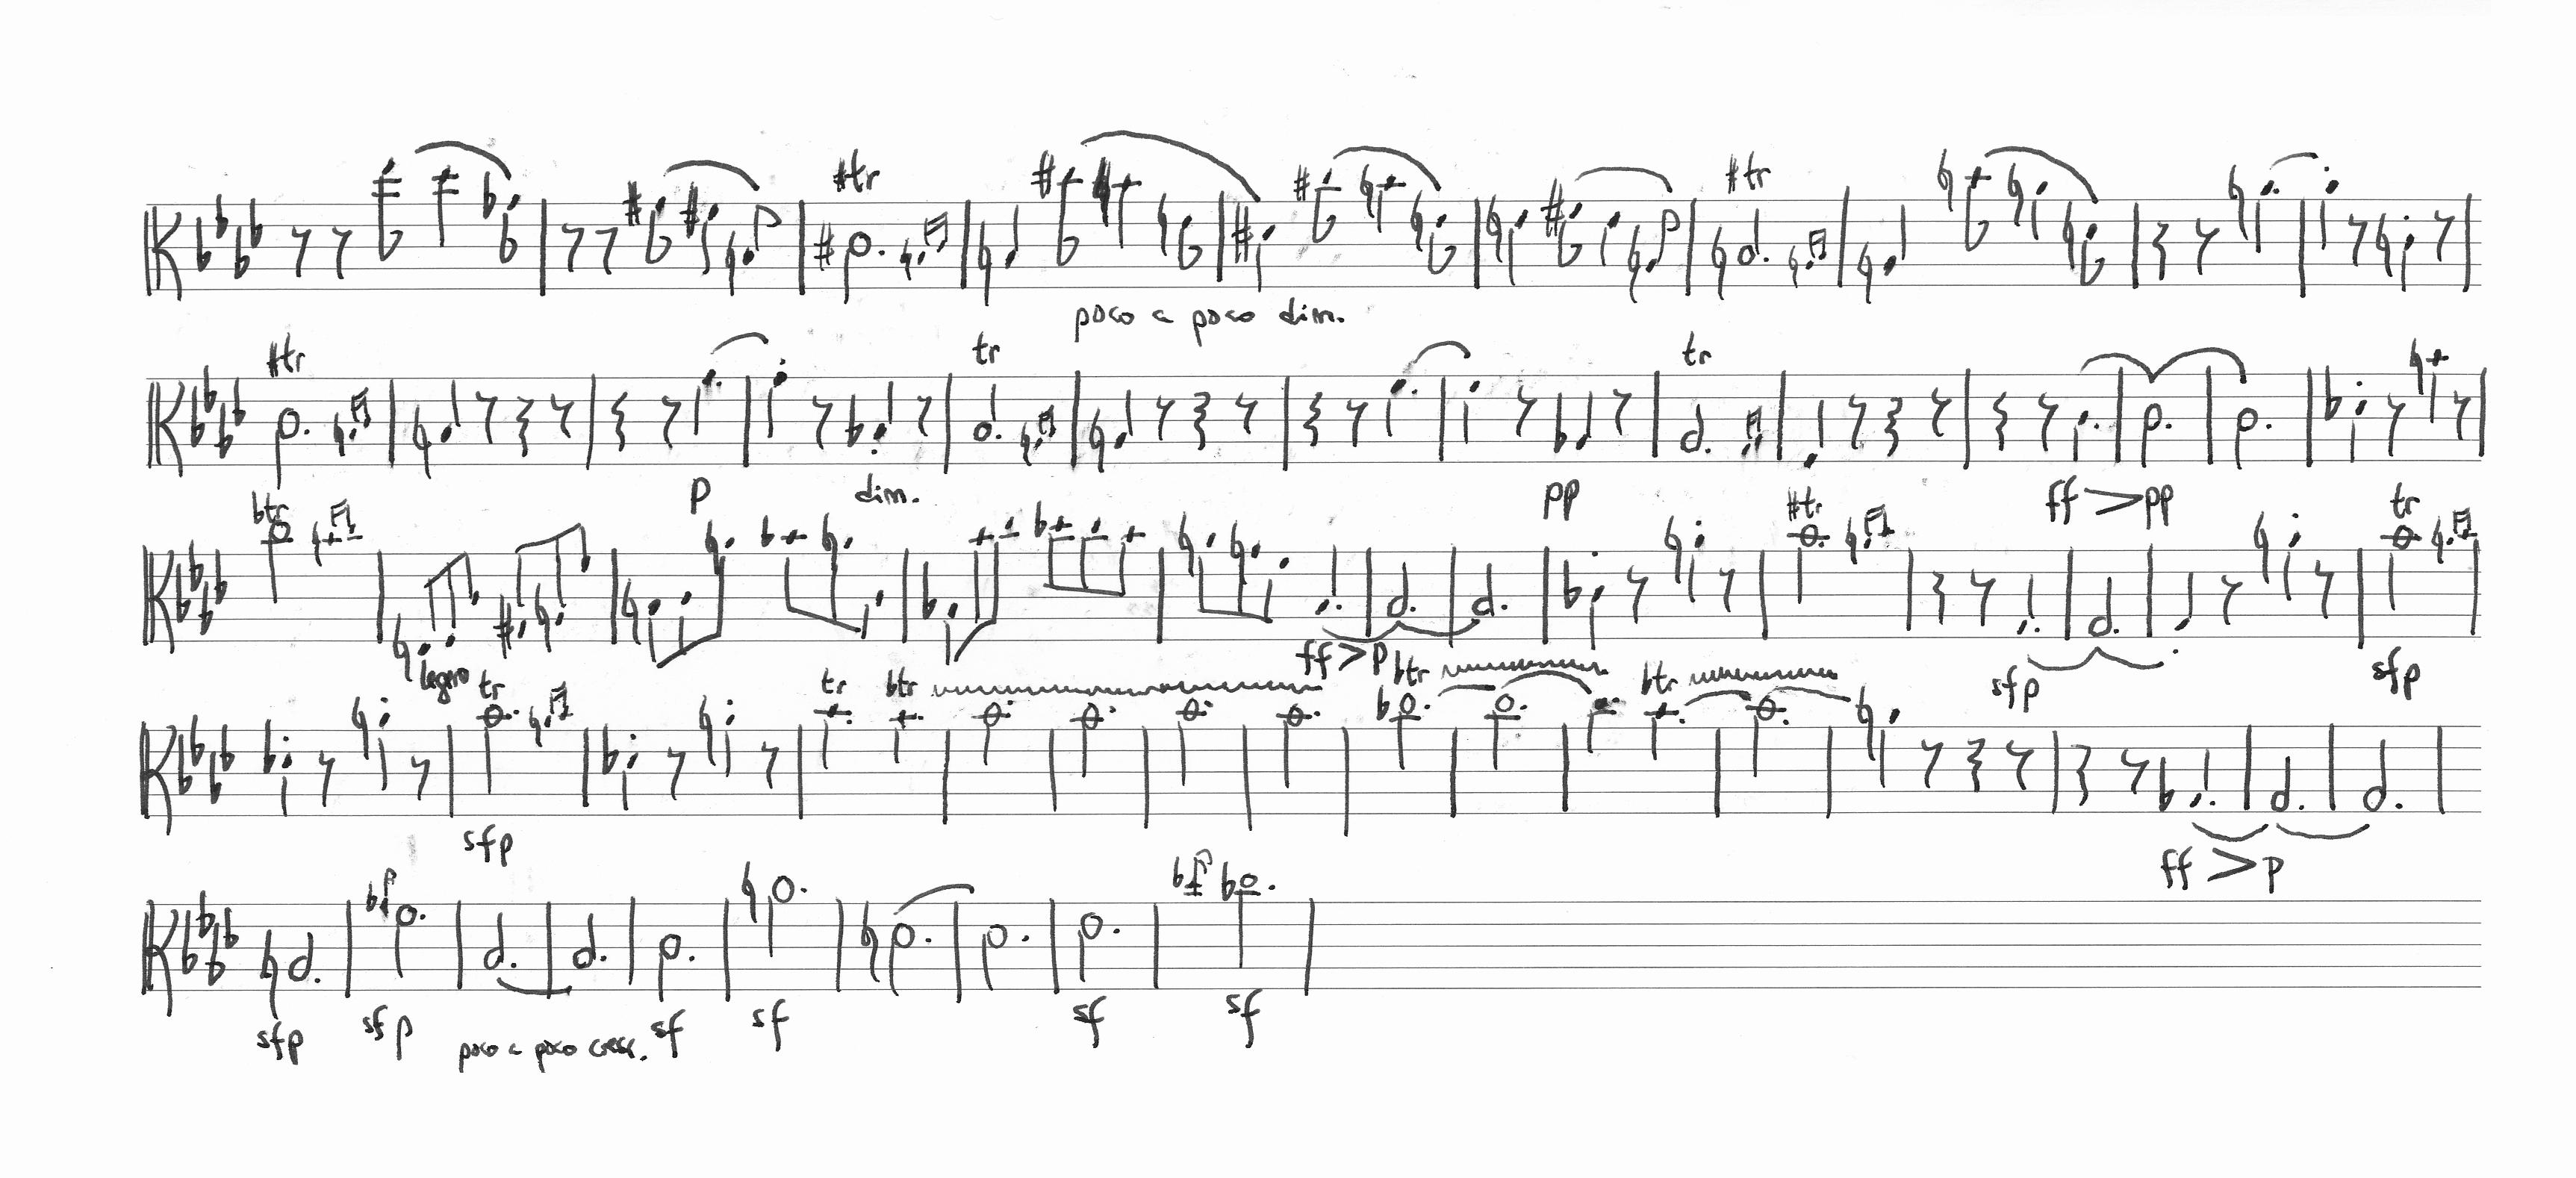 #tr #tr
poco a poco dim.
#tr tr tr
p dim. pp ff pp
btr #tr tr
legero ff p sfp sfp
tr tr btr btr btr
sfp ff p
sfp sfp poco a poco cresc. sf sf sf sf